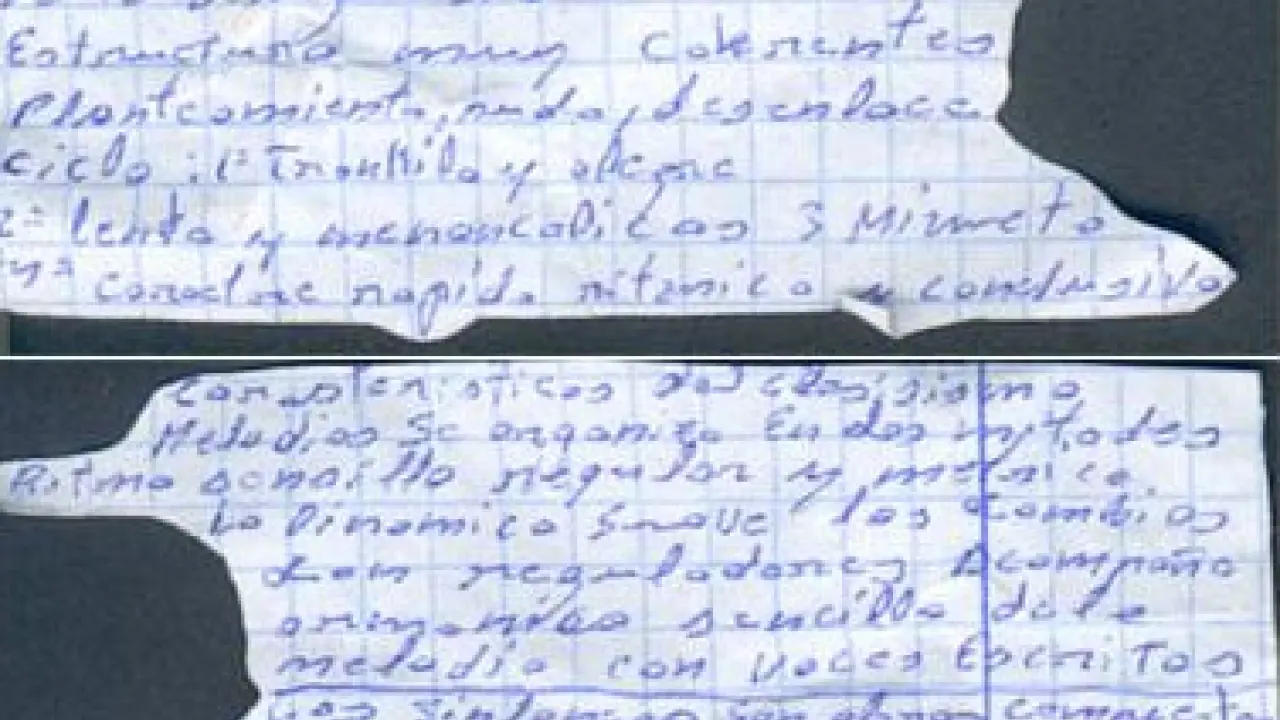 Estructura muy coherentes
Planteamiento, nudo, desenlace
ciclo : 1º Trankilo y alegre
2º lento y menoncolicas 3 Minueto
y 4ª caracter rapido ritmico y conclusivo
Caracteristicas del clasisismo
Melodias se organiza En dos mitades
Ritmo sencillo regular y metrico
La Dinamica Suave los Cambios
son reguladores Acompaña
armonico sencillo dela
melodia con voces Escritas
Las sinfonias son obras